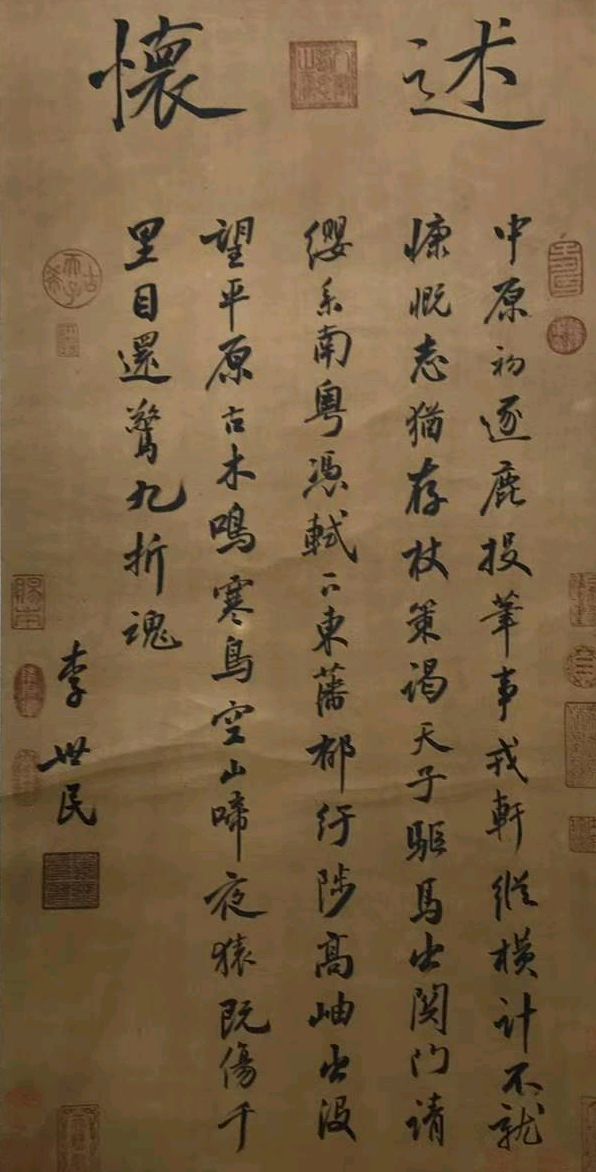 述懷
中原初逐鹿投筆事戎軒縱橫計不就
慷慨志猶存杖策謁天子驅馬出関門請
纓系南粵憑軾下東藩郁紆陟高岫出沒
望平原古木鳴寒鳥空山啼夜猿既傷千
里目還驚九折魂
李世民
古希天子